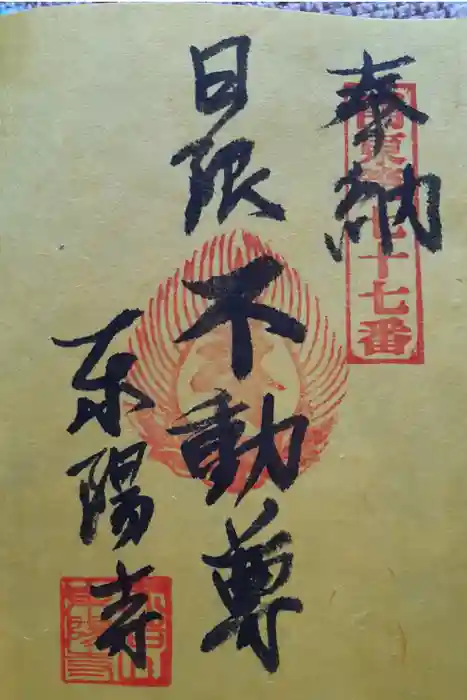 奉納
関東第七十七番
日限
不動尊
東陽寺